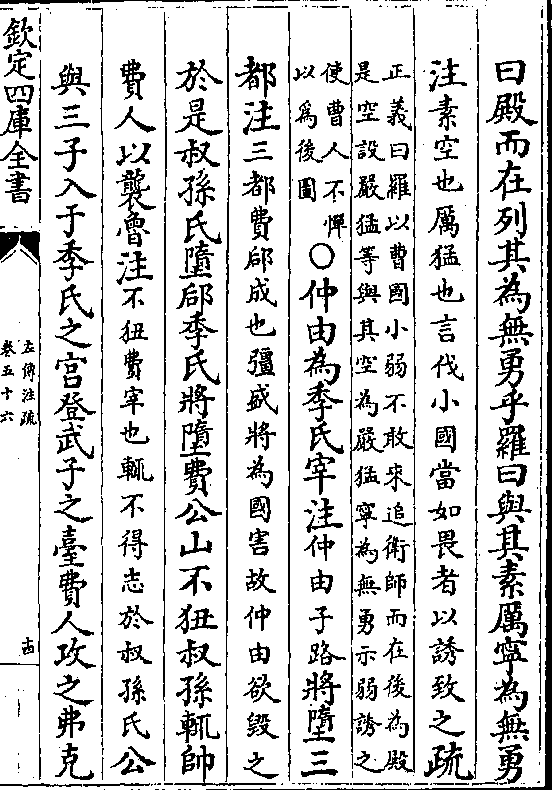 曰殿而在列其為無勇乎羅曰與其素厲寧為無勇
注素空也厲猛也言伐小國當如畏者以誘致之疏
正義曰羅以曹國小弱不敢來追衛師而在後為殿
是空設嚴猛等與其空為嚴猛寧為無勇示弱誘之
使曹人不憚
以為後圖
○仲由為季氏宰注仲由子路將墮三
都注三都費郈成也彊盛將為國害故仲由欲毀之
於是叔孫氏墮郈季氏將墮費公山不狃叔孫輒帥
費人以襲魯注不狃費宰也輒不得志於叔孫氏公
與三子入于季氏之宮登武子之臺費人攻之弗克
欽定四庫全書
左傳注疏
卷五十六
十四